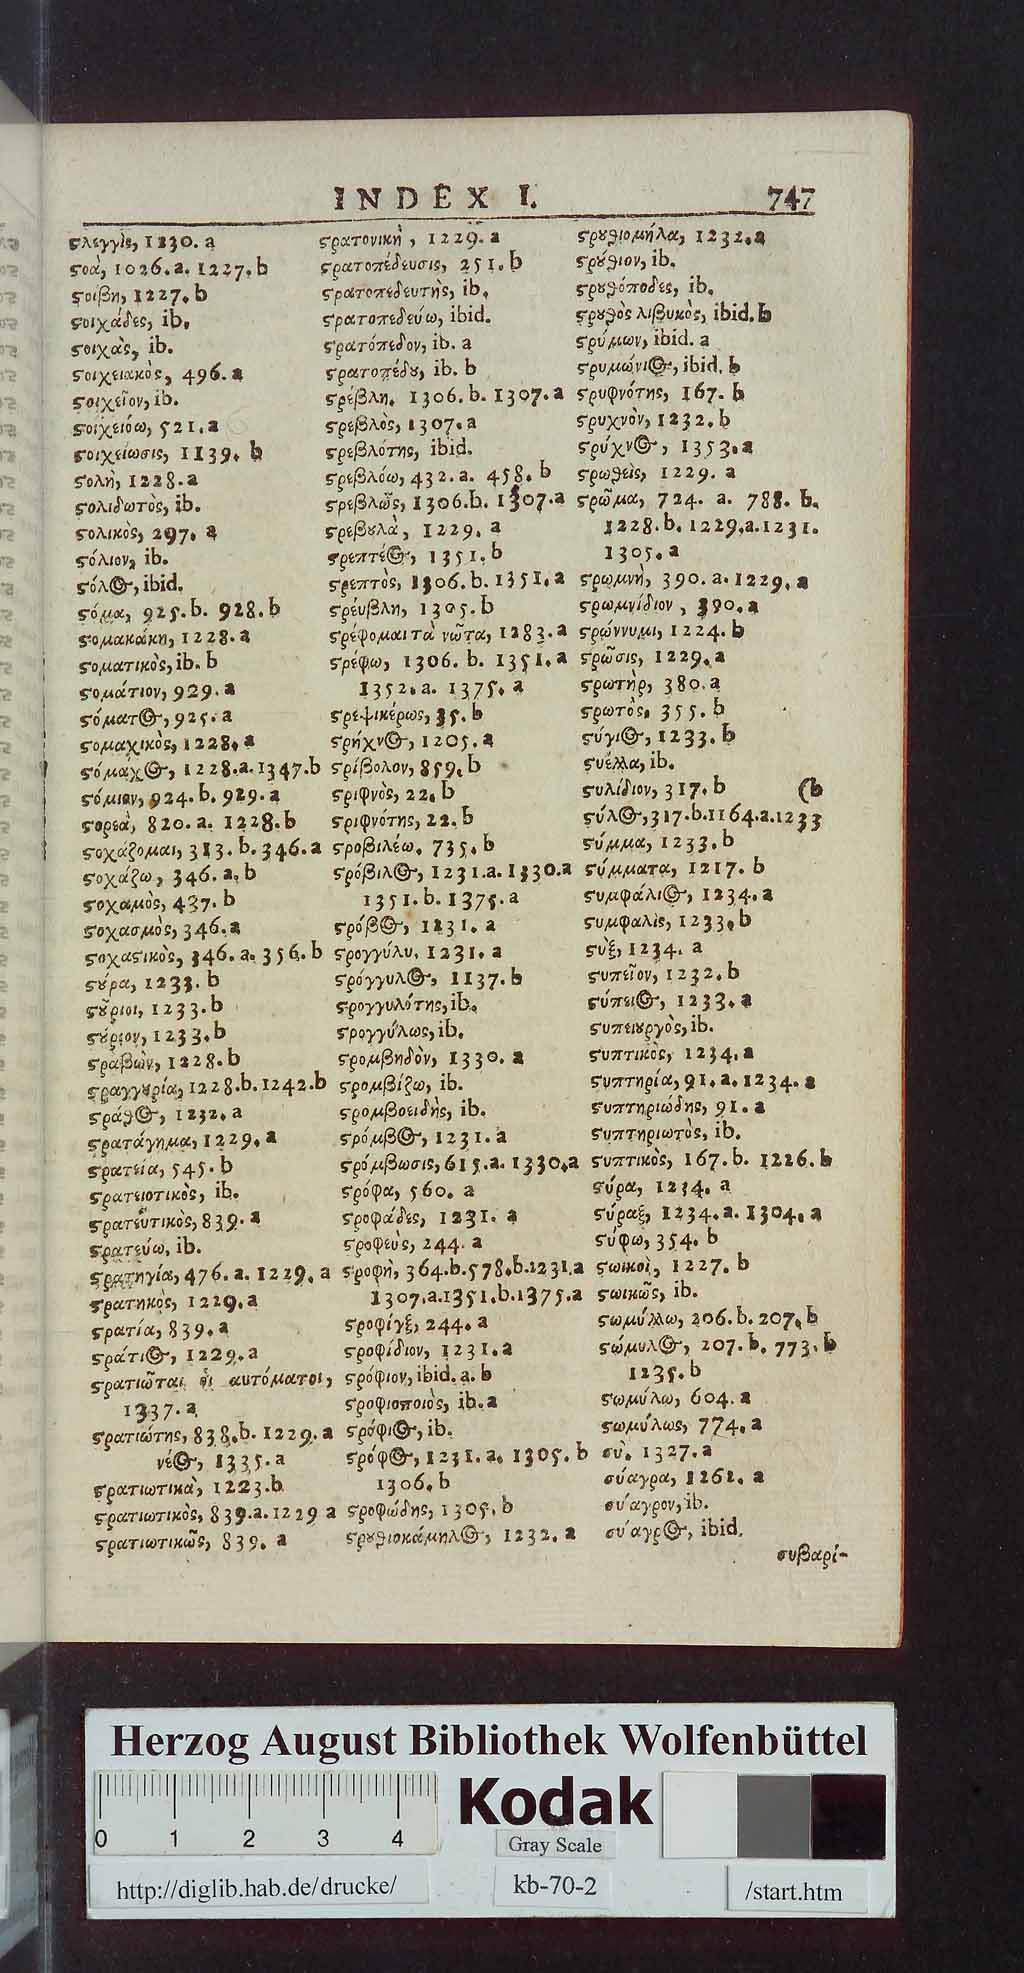 INDEX I. 747
ϛλεγγὶς, 1230. a
ϛοὰ, 1026. a. 1227. b
ϛοίβη, 1227. b
ϛοιχάδες, ib.
ϛοιχὰς, ib.
ϛοιχειακὸς, 496. a
ϛοιχεῖον, ib.
ϛοιχειόω, 521. a
ϛοιχείωσις, 1139. b
ϛολὴ, 1228. a
ϛολιδωτὸς, ib.
ϛολικὸς, 297. a
ϛόλιον, ib.
ϛόλος, ibid.
ϛόμα, 925. b. 928. b
ϛομακάκη, 1228. a
ϛοματικὸς, ib. b
ϛομάτιον, 929. a
ϛόματος, 925. a
ϛομαχικὸς, 1228. a
ϛόμαχος, 1228. a. 1347. b
ϛόμιον, 924. b. 929. a
ϛορεὰ, 820. a. 1228. b
ϛοχάζομαι, 313. b. 346. a
ϛοχάζω, 346. a. b
ϛοχαμὸς, 437. b
ϛοχασμὸς, 346. a
ϛοχαϛικὸς, 346. a. 356. b
ϛȣ́ρα, 1233. b
ϛȣ̃ριοι, 1233. b
ϛȣ́ριον, 1233. b
ϛραβὼν, 1228. b
ϛραγγȣρία, 1228. b. 1242. b
ϛράθος, 1232. a
ϛρατάγημα, 1229. a
ϛρατεία, 545. b
ϛρατειοτικὸς, ib.
ϛρατευτικὸς, 839. a
ϛρατεύω, ib.
ϛρατηγία, 476. a. 1229. a
ϛρατηκὸς, 1229. a
ϛρατία, 839. a
ϛράτιος, 1229. a
ϛρατιῶται οἱ αυτόματοι,
1337. a
ϛρατιώτης, 838. b. 1229. a
νέος, 1335. a
ϛρατιωτικὰ, 1223. b
ϛρατιωτικὸς, 839. a. 1229 a
ϛρατιωτικῶς, 839. a
ϛρατονικὴ, 1229. a
ϛρατοπέδευσις, 251. b
ϛρατοπεδευτὴς, ib.
ϛρατοπεδεύω, ibid.
ϛρατόπεδον, ib. a
ϛρατοπέδȣ, ib. b
ϛρέβλη, 1306. b. 1307. a
ϛρεβλὸς, 1307. a
ϛρεβλότης, ibid.
ϛρεβλόω, 432. a. 458. b
ϛρεβλῶς, 1306. b. 1307. a
ϛρεβȣλὰ, 1229. a
ϛρεπτέος, 1351. b
ϛρεπτὸς, 1306. b. 1351. a
ϛρέυβλη, 1305. b
ϛρέφομαι τὰ νῶτα, 1283. a
ϛρέφω, 1306. b. 1351. a
1352. a. 1375. a
ϛρεψικέρως, 35. b
ϛρήχνος, 1205. a
ϛρίβολον, 859. b
ϛριφνὸς, 22. b
ϛριφνότης, 22. b
ϛροβιλέω, 735. b
ϛρόβιλος, 1231. a. 1330. a
1351. b. 1375. a
ϛρόβος, 1231. a
ϛρογγύλυ, 1231. a
ϛρόγγυλος, 1137. b
ϛρογγυλότης, ib.
ϛρογγύλως, ib.
ϛρομβηδὸν, 1330. a
ϛρομβίζω, ib.
ϛρομβοειδὴς, ib.
ϛρόμβος, 1231. a
ϛρόμβωσις, 615. a. 1330. a
ϛρόφα, 560. a
ϛροφάδες, 1231. a
ϛροφεὺς, 244. a
ϛροφὴ, 364. b. 578. b. 1231. a
1307. a. 1351. b. 1375. a
ϛροφίγξ, 244. a
ϛροφίδιον, 1231. a
ϛρόφιον, ibid. a. b
ϛροφιοποιὸς, ib. a
ϛρόφιος, ib.
ϛρόφος, 1231. a. 1305. b
1306. b
ϛροφώδης, 1305. b
ϛρȣθιοκάμηλος, 1232. a
ϛρȣθιομήλα, 1232. a
ϛρȣ́θιον, ib.
ϛρȣθόποδες, ib.
ϛρȣθὸς λιβυκὸς, ibid. b
ϛρύμων, ibid. a
ϛρυμώνιος, ibid. b
ϛρυφνότης, 167. b
ϛρυχνὸν, 1232. b
ϛρύχνος, 1353. a
ϛρωθεὶς, 1229. a
ϛρῶμα, 724. a. 788. b.
1228. b. 1229. a. 1231.
1305. a
ϛρωμνὴ, 390. a. 1229. a
ϛρωμνίδιον, 390. a
ϛρώννυμι, 1224. b
ϛρῶσις, 1229. a
ϛρωτὴρ, 380. a
ϛρωτὸς, 355. b
ϛύγιος, 1233. b
ϛυέλλα, ib.
ϛυλίδιον, 317. b (b
ϛύλος, 317. b. 1164. a. 1233
ϛύμμα, 1233. b
ϛύμματα, 1217. b
ϛυμφάλιος, 1234. a
ϛυμφαλὶς, 1233. b
ϛὺξ, 1234. a
ϛυπεῖον, 1232. b
ϛύπειος, 1233. a
ϛυπειȣργὸς, ib.
ϛυπτικὸς, 1234. a
ϛυπτηρία, 91. a. 1234. a
ϛυπτηριώδης, 91. a
ϛυπτηριωτὸς, ib.
ϛυπτικὸς, 167. b. 1226. b
ϛύρα, 1234. a
ϛύραξ, 1234. a. 1304. a
ϛύφω, 354. b
ϛωικοὶ, 1227. b
ϛωικῶς, ib.
ϛωμύλλω, 206. b. 207. b
ϛώμυλος, 207. b. 773. b
1235. b
ϛωμύλω, 604. a
ϛωμύλως, 774. a
σὺ, 1327. a
σύαγρα, 1261. a
σύαγρον, ib.
σύαγρος, ibid.
συβαρί-
Herzog August Bibliothek Wolfenbüttel
0 1 2 3 4
Kodak
Gray Scale
http://diglib.hab.de/drucke/
kb-70-2
/start.htm